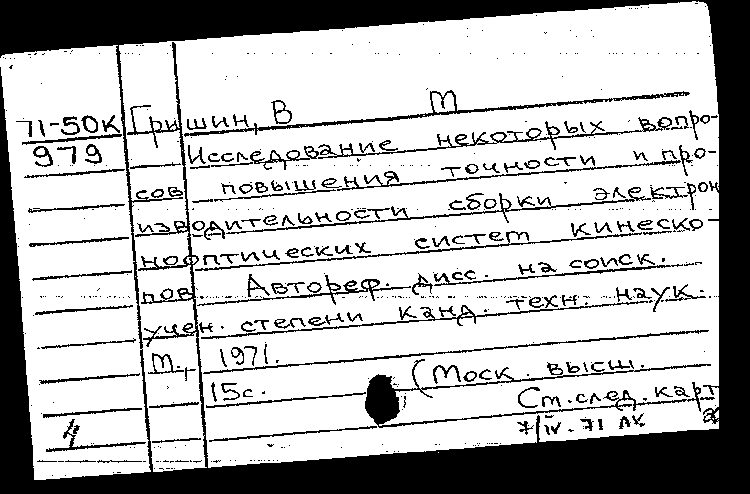 71-50К Гришин, В М
979 Исследование некоторых вопро-
сов повышения точности и про-
изводительности сборки электрон
нооптических систем кинеско-
пов. Автореф. дисс. на соиск.
учен. степени канд. техн. наук.
М., 1971.
15с. (Моск. высш.
См. след. карт
4 7/IV. 71 АК